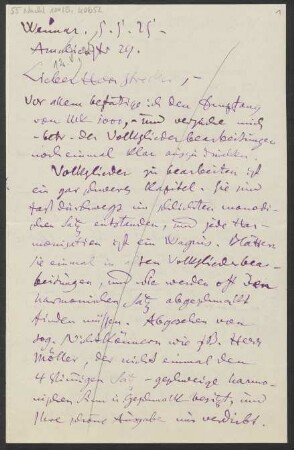 55 Nachl 100/B, 40652
1
Weimar, 5.5.25.
Amalienstr. 29.
Lieber Herr Strecker,-
Vor allem bestätige ich den Empfang
von Mk 1000,- und versuche mich
betr. der Volksliederbearbeitungen
noch einmal klar auszudrücken.
Volkslieder zu bearbeiten ist
ein gar schweres Kapitel. Sie sind
fast durchwegs im schlichten monodi-
schen Satz entstanden, und jede Har-
monisation ist ein Wagnis. Blättern
sie einmal in alten Volksliederbear-
beitungen, und Sie werden oft den
harmonischen Satz abgeschmackt
finden müssen. Abgesehen von
sog. Nichtkönnern wie z.B. Herr
Möller, der nicht einmal den
4 stimmigen Satz - geschweige harmo-
nischen Sinn u. Geschmack besitzt, und
Ihre schöne Ausgabe nur verdirbt.